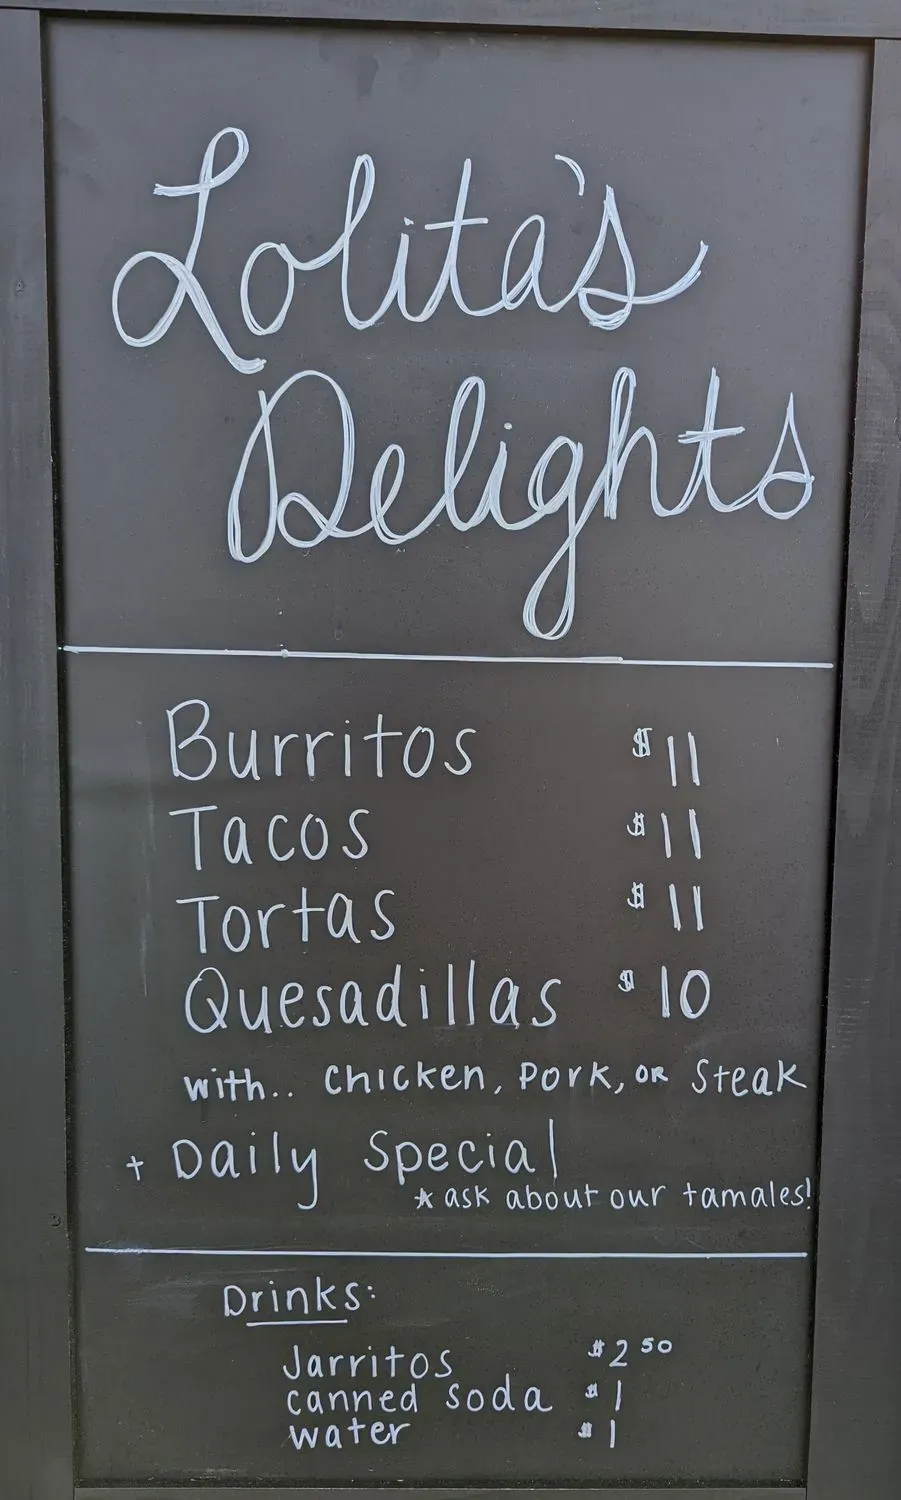 Lolita's
Delights
Burritos $11
Tacos $11
Tortas $11
Quesadillas $10
with.. Chicken, Pork, or Steak
+ Daily Special
* ask about our tamales!
Drinks:
Jarritos $2 50
canned soda $1
water $1